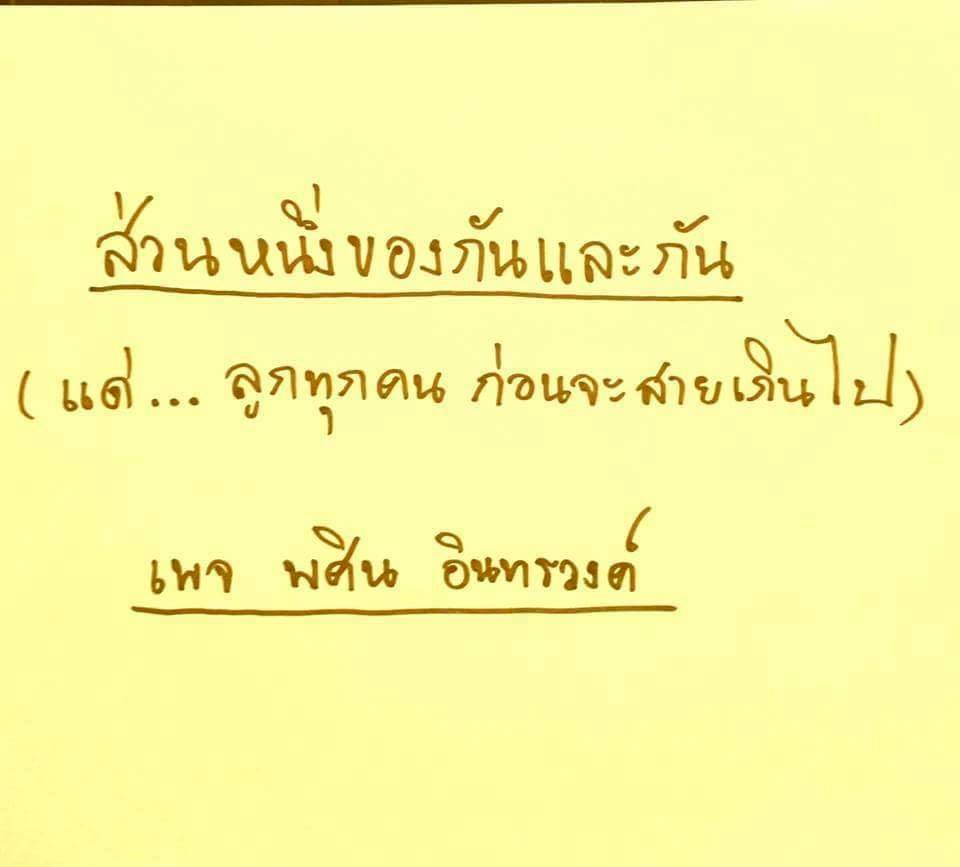 ส่วนหนึ่งของกันและกัน
(แด่... ลูกทุกคน ก่อนจะสายเกินไป)
เพจ พศิน อินทรวงค์